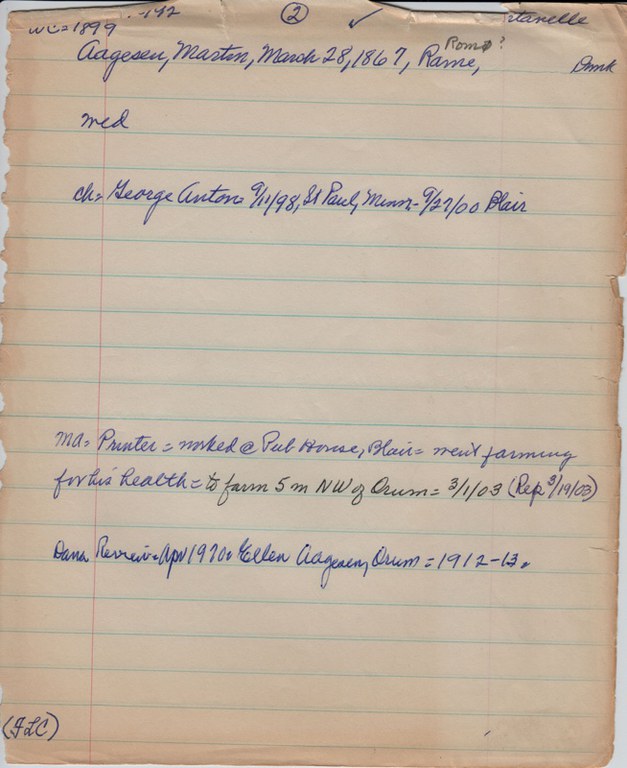 -142 ② ✓
WC=1899
Romø?
Aagesen, Martin, March 28, 1867, Rame, Dmk
med
ch= George Anton= 9/11/98, St Paul, Minn- 9/27/00 Blair
MA= Printer= worked @ Pub House, Blair= went farming
for his health= to farm 5 m NW of Orum= 3/1/03 (Rep 3/19/03)
Dana Review=Apr 1970= Ellen Aagesen, Orum = 1912-13.
(FLC)